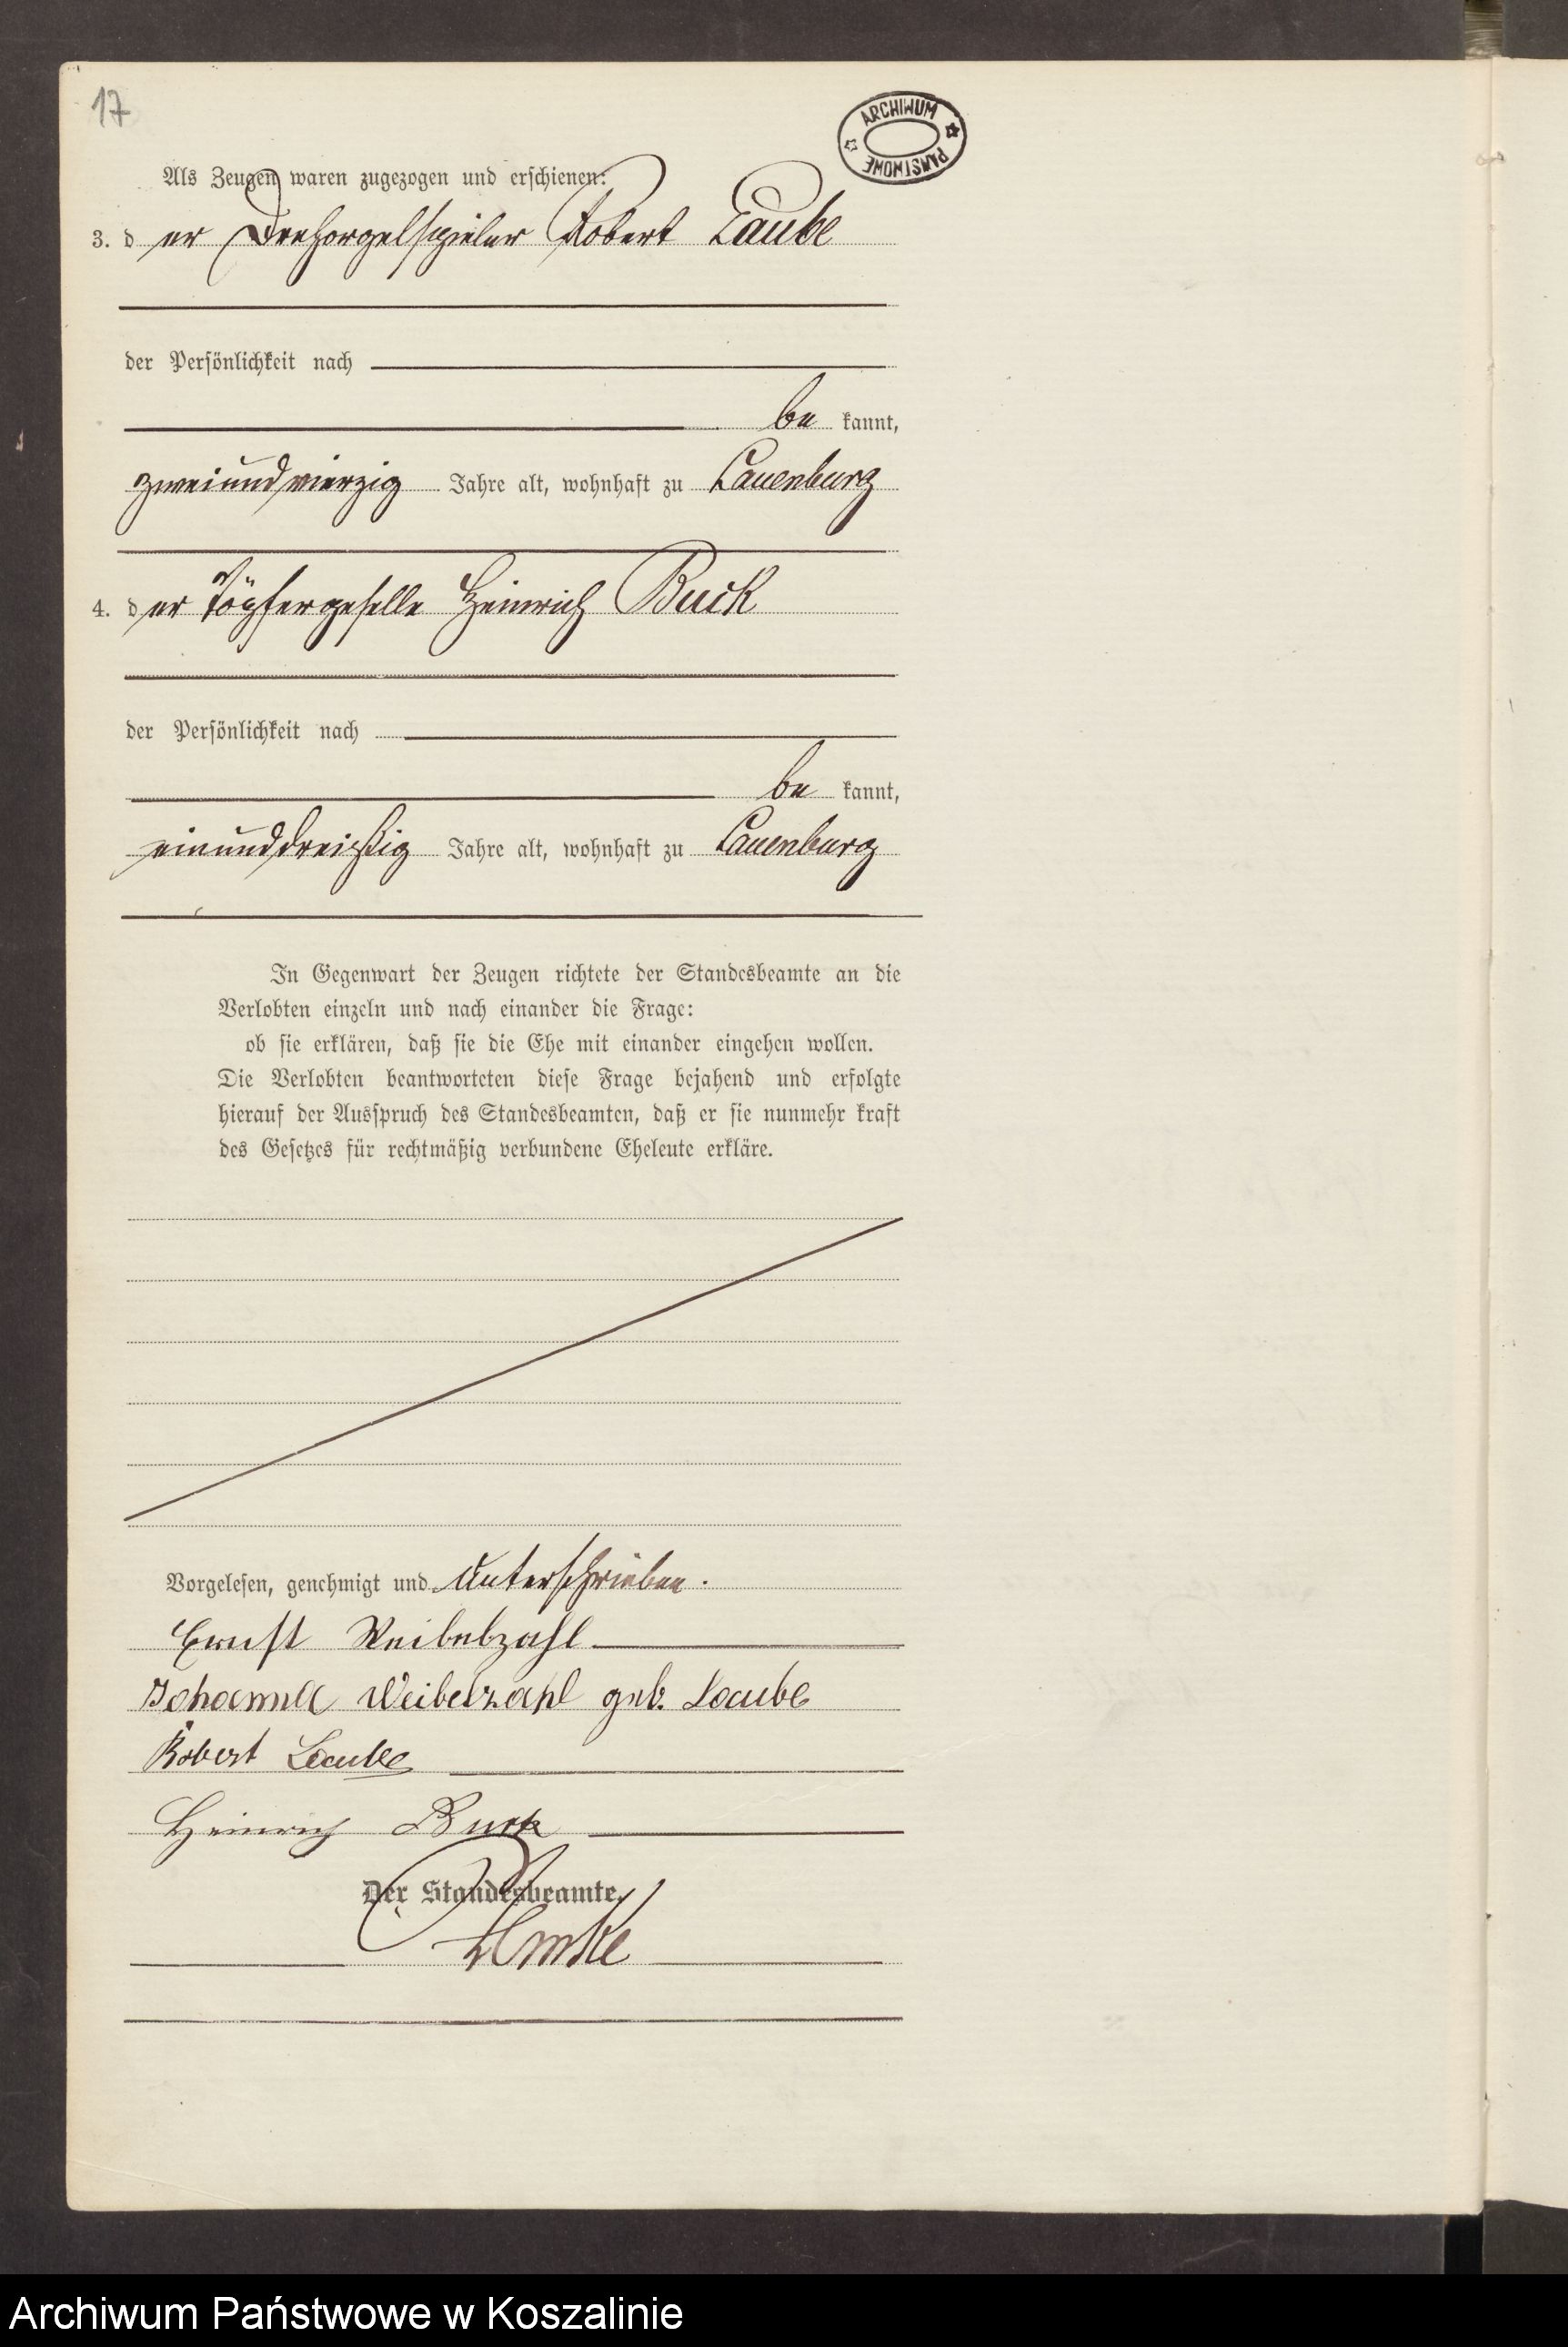 17
ARCHIWUM PAŃSTWOWE
Als Zeugen waren zugezogen und erschienen:
3. der Drehorgelspieler Robert Laube
der Persönlichkeit nach
be kannt,
zweiundvierzig Jahre alt, wohnhaft zu Lauenburg
4. der Töpfergeselle Heinrich Buck
der Persönlichkeit nach
be kannt,
einunddreißig Jahre alt, wohnhaft zu Lauenburg
In Gegenwart der Zeugen richtete der Standesbeamte an die
Verlobten einzeln und nach einander die Frage:
ob sie erklären, daß sie die Ehe mit einander eingehen wollen.
Die Verlobten beantworteten diese Frage bejahend und erfolgte
hierauf der Ausspruch des Standesbeamten, daß er sie nunmehr kraft
des Gesetzes für rechtmäßig verbundene Eheleute erkläre.
Vorgelesen, genehmigt und unterschrieben.
Ernst Weibelzahl
Johanna Weibelzahl geb. Laube
Robert Laube
Heinrich Buck
Der Standesbeamte.
Archiwum Państwowe w Koszalinie